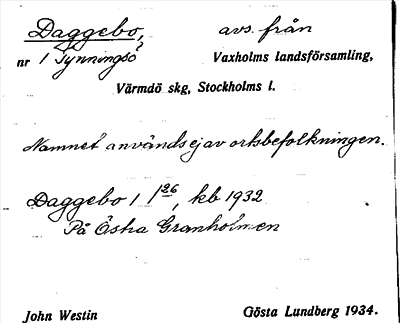 Daggebo, avs. från
nr 1 Tynningsö Vaxholms landsförsamling,
Värmdö skg, Stockholms l.
Namnet användes ej av ortsbefolkningen.
Daggebo 1 1/26, kb 1932
På Östra Granholmen
John Westin Gösta Lundberg 1934.